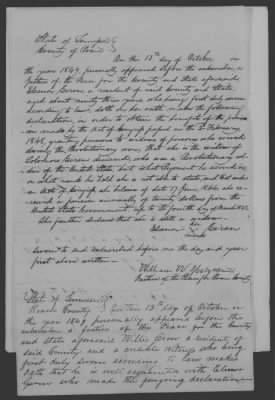 State of Tennessee
County of Roane
On this 13th day of October in
the year 1849, personally appeared before the subscriber, a
Justice of the Peace for the County and State aforesaid
Eleanor a resident of said County and State,
aged about ninety three years, who being first duly sworn
according to law, doth on her oath, make the following
declaration, in order to obtain the benefit of the provis-
ion made by the Act of Congress passed on the 2nd February
1848, granting pensions to widows of persons who served
during the Revolutionary war, that she is the widow of
deceased, who was a Revolutionary sol-
dier of the United States, but what Regiment he served in
or what rank he held she is not able to state, and that under
an Act of Congress she believes of date 17 June, 1844, she re-
ceived a pension annually of twenty dollars from the
United States Government, up to the fourth day of March 1848.
She further declares that she is still a widow.
Eleanor her
mark
Sworn to and subscribed before me the day and year
first above written
William W.
Justice of the Peace for Roane County
State of Tennessee
Roane County On this 13th day of October in
the year 1849 personally appeared before the
subscriber a Justice of the Peace for the County
and State aforesaid Willis a resident of
said County and a credible witness who being
first duly sworn according to law makes
oath that he is well acquainted with Eleanor
who made the foregoing declaration